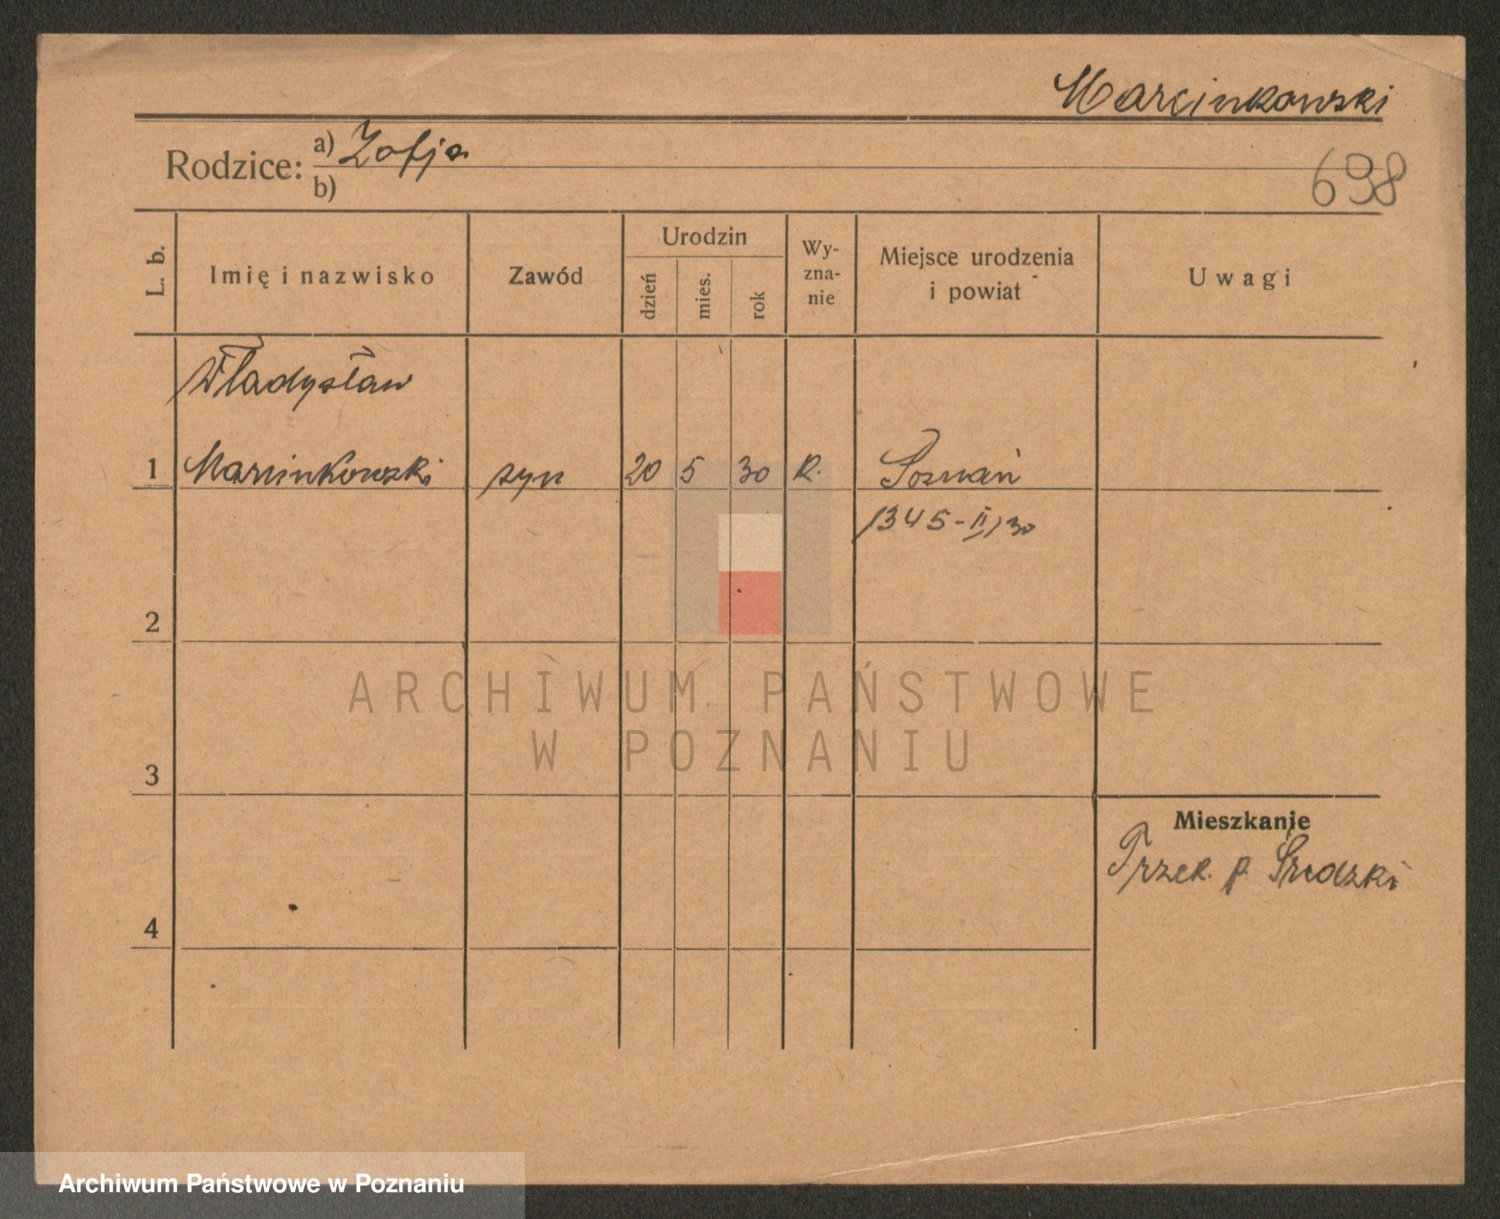 Marcinkowski
Rodzice: a) Zofja
b)
698
L. b.
Imię i nazwisko
Zawód
Urodzin
dzień
mies.
rok
Wy-
zna-
nie
Miejsce urodzenia
i powiat
Uwagi
Władysław
1 Marcinkowski syn 20 5 30 R. Poznań
1345-II/30
2
ARCHIWUM PAŃSTWOWE
W POZNANIU
3
Mieszkanie
Przek. p. Średzki
4
Archiwum Państwowe w Poznaniu